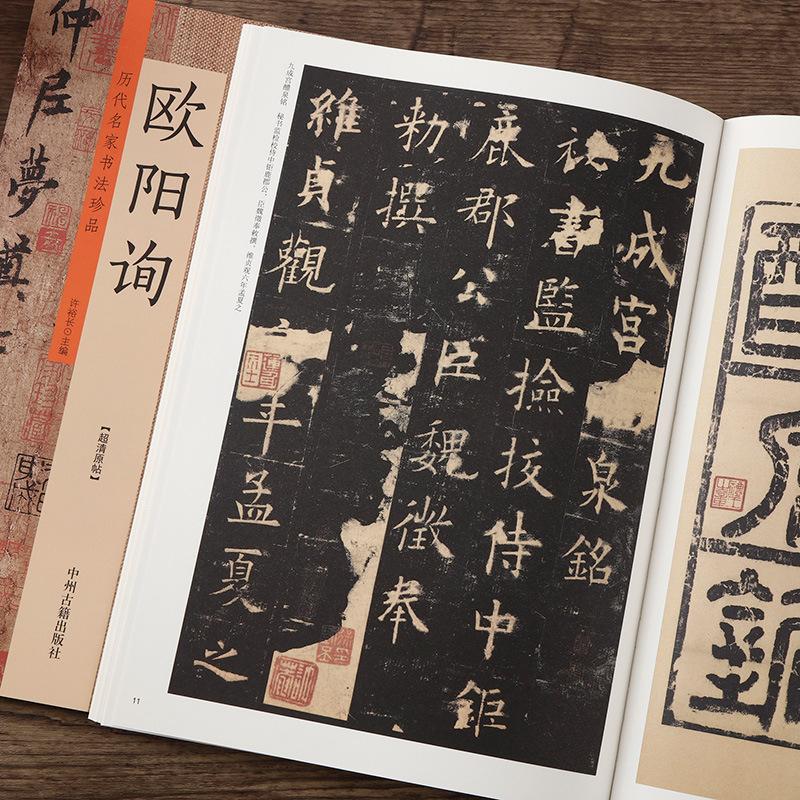 仲尼夢奠
历代名家书法珍品
欧阳询
许裕长⊙主编
【超清原帖】
中州古籍出版社
九成宫醴泉铭 秘书监检校侍中钜鹿郡公、臣魏徵奉敕撰。维贞观六年孟夏之
九成宮泉銘
秘書監撿挍侍中鉅
鹿郡公臣魏徵奉
勑撰
維貞觀年孟夏之
11